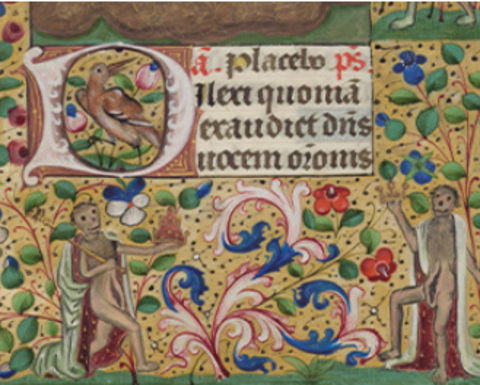 ā. Placebo ps.
Dilexi quoniā
exaudiet dn̄s
uocem or̄onis